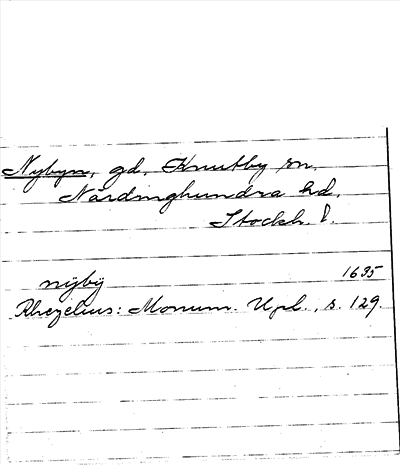 Nybyn, gd, Knutby sn.
Närdinghundra hd.
Stockh. l.
nÿbÿ 1635
Rhezelius: Monum. Upl., s. 129.